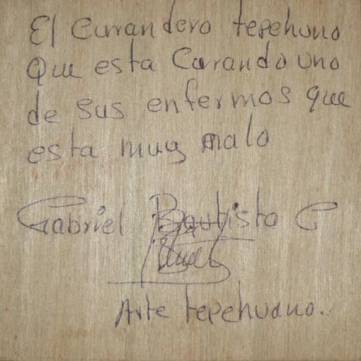 El Curandero tepehuno
Que esta Curando uno
de sus enfermos que
esta muy malo
Gabriel Bautisto C
Arte tepehuano.